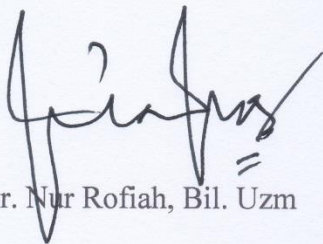 r. Nur Rofiah, Bil. Uzm